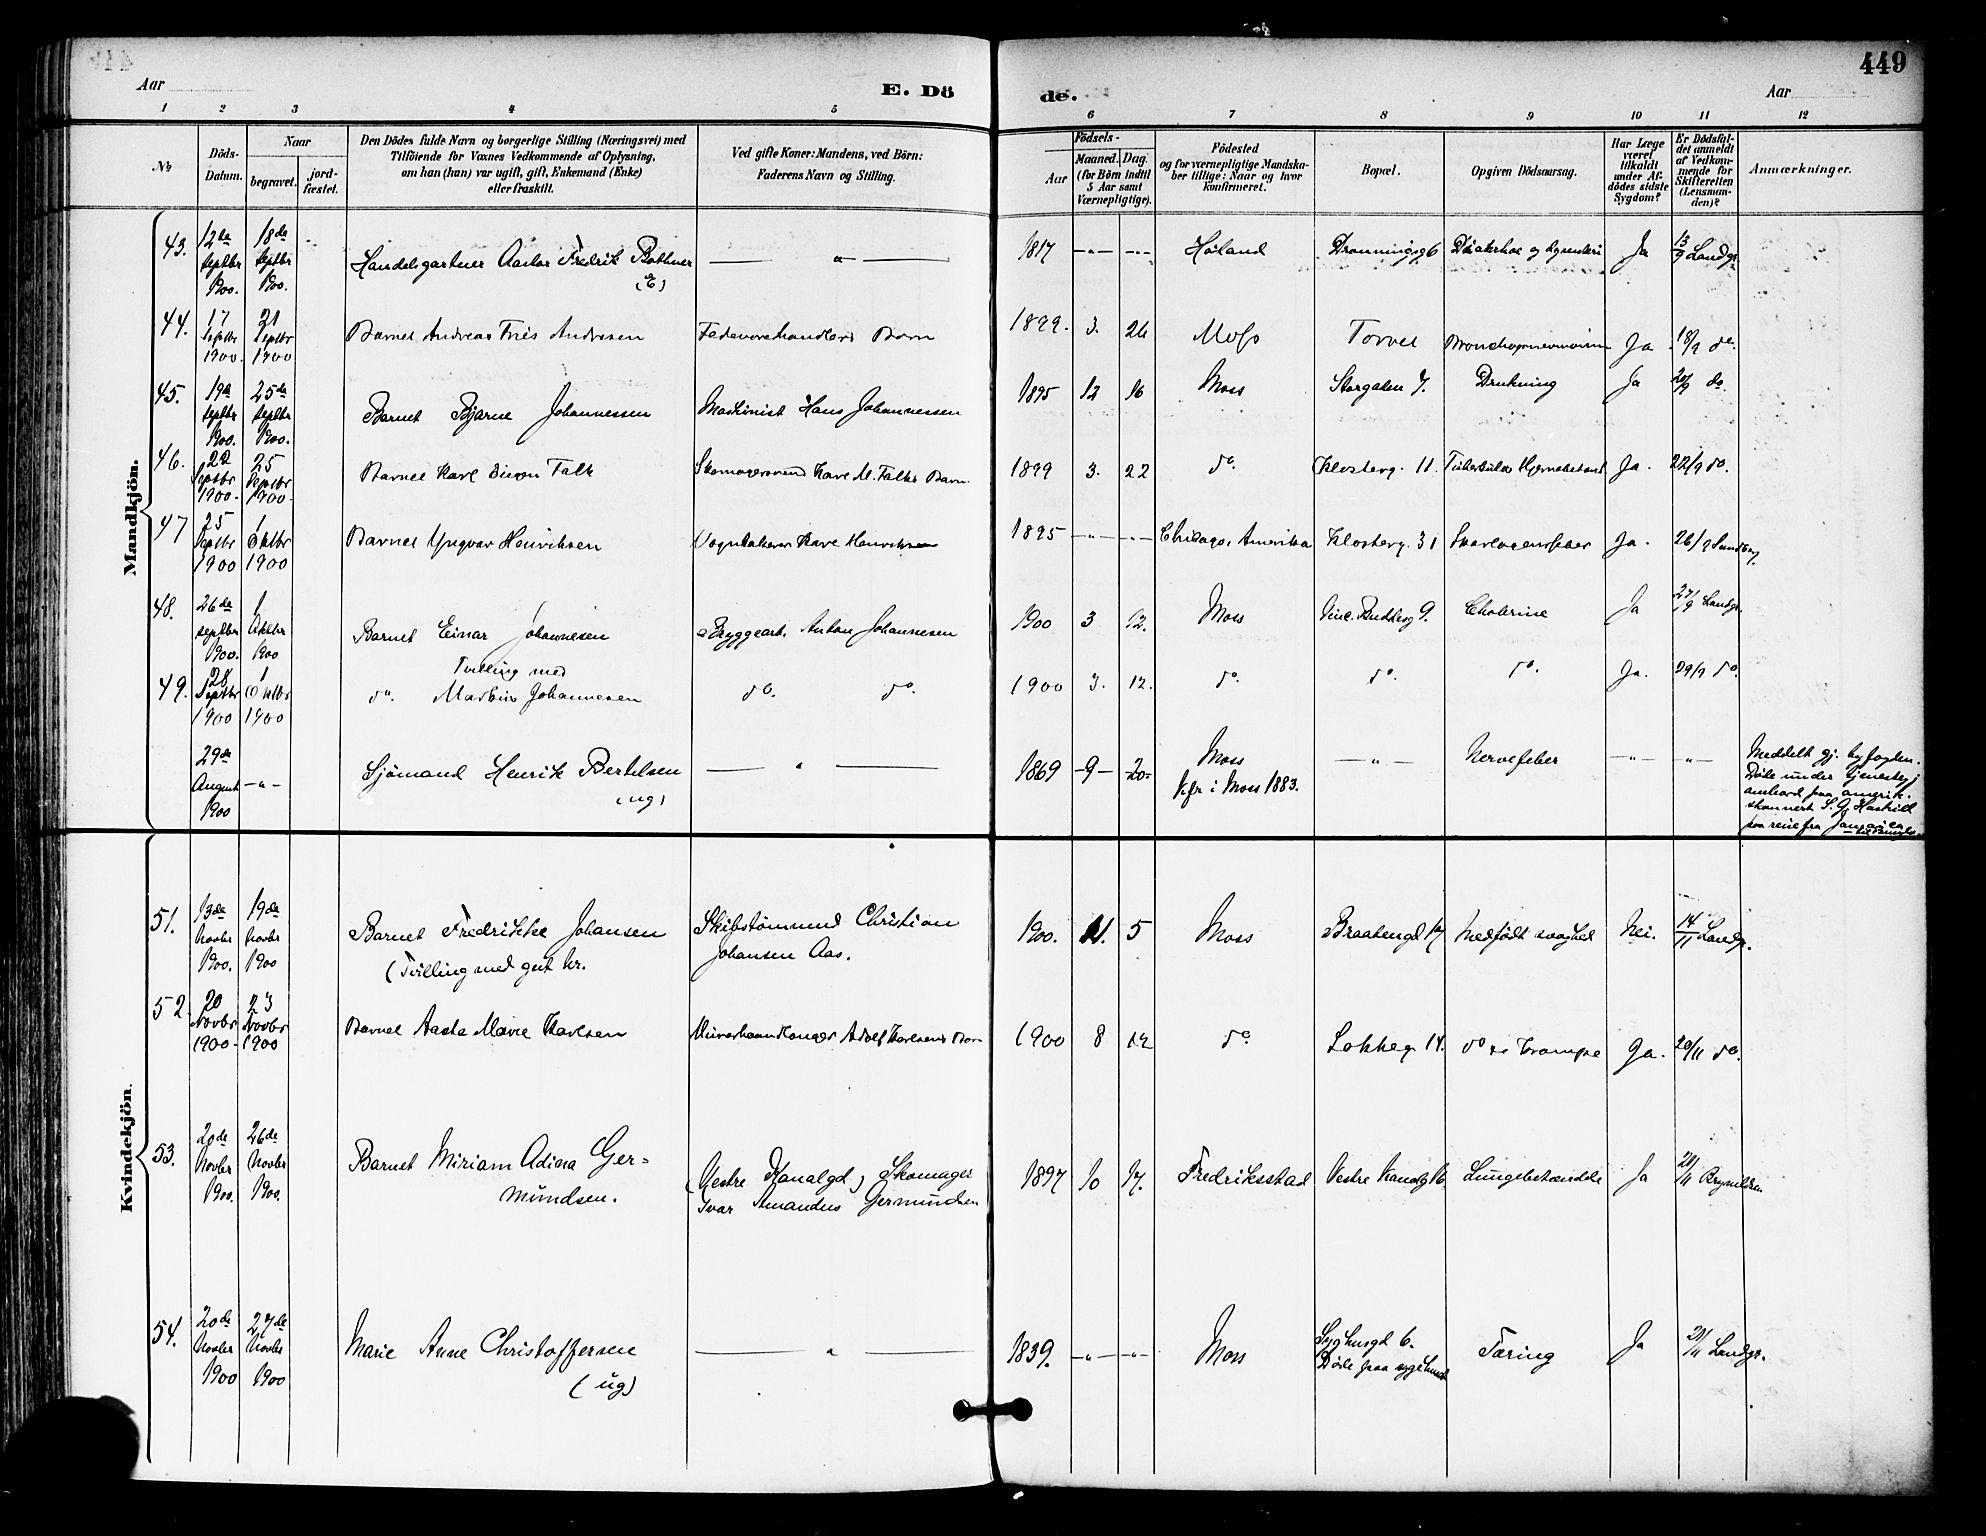 449
Aar
E. Dö
de.
Aar
1 2 3 4 5 6 7 8 9 10 11 12
No
Döds-Datum.
Naar
begravet.
jord-fæstet.
Den Dödes fulde Navn og borgerlige Stilling (Næringsvei) med
Tilföiende for Voxnes Vedkommende af Oplysning,
om han (hun) var ugift, gift, Enkemand (Enke)
eller fraskilt.
Ved gifte Koner: Mandens, ved Börn:
Faderens Navn og Stilling.
Födsels-
Aar
Maaned. Dag.
(for Börn indtil
5 Aar samt
Værnepligtige).
Födested
og for værnepligtige Mandska-
ber tillige: Naar og hvor
konfirmeret.
Bopæl.
Opgiven Dödsaarsag.
Har Læge
været
tilkaldt
under Af-
dödes sidste
Sygdom?
Er Dödsfal-
det anmeldt
af Vedkom-
mende for
Skifteretten
(Lensman-
den)?
Anmærkninger.
Mandkjön.
43. 12te Septbr 1900. 18de Septbr 1900. Handelsgartner Fredrik Bothner (E) — " — 1817 — " — Høland Dronningsg 6 og Dysenteri Ja 13/9 Landgr.
44. 17 Septbr 1900. 21 Septbr 1900 Barnet Andreas Friis Andresen Fedevarehandlers Barn 1899. 3. 26 Moss Torvet Bronchopneumoni Ja 18/9 do.
45. 19de Septbr 1900. 25de Septbr 1900. Barnet Bjarne Johannessen Maskinist Hans Johannessen 1895 12 16 Moss Storgaten 7. Drukning Ja 20/9 do.
46. 22 Septbr 1900. 25 Septbr 1900. Barnet Karl Falk Skomagersvend Karl M. Falks Barn 1899 3. 22 do. Klosterg. 11. Tuberkuløs Hjernebetænd Ja. 22/9 do.
47 25 Septbr 1900 1 Oktbr 1900 Barnet Yngvar Henriksen Karl Henriksen 1895 — " — Chicago, Amerika Klosterg. 31 Skarlagensfeber Ja. 26/9
48. 26de Septbr 1900. 1 Oktbr 1900 Barnet Einar Johannesen Bryggearb. Anton Johannesen 1900 3 12. Moss Vinc. Buddesg 9. Cholerine Ja 27/9 Landgr.
Tvilling med
49. 28 Septbr 1900 1 Oktbr 1900 do. Markus Johannesen do. do. 1900 3. 12. do. do. do. Ja. 29/9 do.
29de August 1900 — " — Sjömand Henrik Bertelsen (ug) — " — 1869 9 20 Moss Kfr i Moss 1883. — " — Nervefeber — " — — " —
Meddelt gj. byfogden.
Døde under Tjeneste
ombord paa amerik.
skonnert S. G. Haskell
paa reise fra Jamaica
Kvindekjön.
51. 13de Novbr 1900. 19de Novbr 1900 Barnet Fredrikke Johansen Skibstömmmd Christian 1900. 11. 5 Moss Braatengd 17 Medfödt svaghed Nei. 14/11 Landgr.
(Tvilling med gut hr. Johansen Aas.
52. 20 Novbr 1900. 23 Novbr 1900 Barnet Aasta Marie Karlsen Murerhaandlanger Adolf Karlsens Barn 1900 8 12 do Løkkeg 14. do Krampe Ja. 20/11 do.
53. 20de Novbr 1900. 26de Novbr 1900. Barnet Miriam Adina Ger=
mundsen. (Vestre Kanalgd) Skomager
Ivar Amandus Germundsen 1897 10 17. Fredriksstad Vestre Kanalg 16. Lungebetændelse Ja 20/11 Brynildsen
54. 20de Novbr 1900 27de Novbr 1900 Marie Anne Christoffersen
(ug) — " — 1839. — " — Moss Syghusgd 6.
Døde paa sygehuset Tæring Ja 21/11 Landgr.